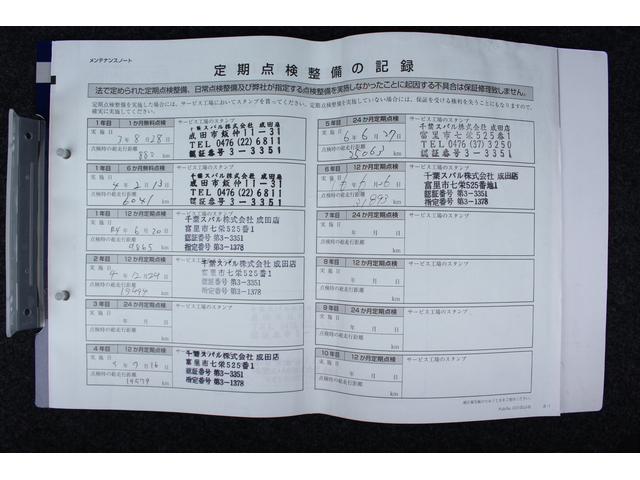 メンテナンスノート
定期点検整備の記録
法で定められた定期点検整備、日常点検整備及び弊社が指定する点検整備を実施しなかったことに起因する不具合は保証修理致しません。
定期点検整備を実施した場合には、サービス工場においてスタンプを貰ってください。定期点検整備が実施していない場合には、保証を受ける権利を失うことにもなりますので、
確実に実施してください。
1年目 1か月無料点検 サービス工場のスタンプ
実施日 3年8月28日
点検時の総走行距離 km
千葉スバル株式会社 成田店
成田市飯仲11-31
TEL 0476(22)6811
認証番号 3-3351
1年目 6か月無料点検 サービス工場のスタンプ
実施日 4年2月13日
点検時の総走行距離 6041 km
千葉スバル株式会社 成田店
成田市飯仲11-31
TEL 0476(22)6811
認証番号 3-3351
1年目 12か月定期点検 サービス工場のスタンプ
実施日 R4年6月20日
点検時の総走行距離 9865 km
千葉スバル株式会社 成田店
富里市七栄525番1
認証番号 第3-3351
指定番号 第3-1378
2年目 12か月定期点検 サービス工場のスタンプ
実施日 4年12月24日
点検時の総走行距離 km
千葉スバル株式会社 成田店
富里市七栄525番1
認証番号 第3-3351
指定番号 第3-1378
3年目 24か月定期点検 サービス工場のスタンプ
実施日 年 月 日
点検時の総走行距離 km
4年目 12か月定期点検 サービス工場のスタンプ
実施日 年7月16日
点検時の総走行距離 km
千葉スバル株式会社 成田店
富里市七栄525番1
認証番号 第3-3351
指定番号 第3-1378
5年目 24か月定期点検 サービス工場のスタンプ
実施日 6年6月29日
点検時の総走行距離 25063 km
千葉スバル株式会社 成田店
富里市七栄525番1
TEL 0476(37)3250
認証番号 3-3351
6年目 12か月定期点検 サービス工場のスタンプ
実施日
点検時の総走行距離 31893 km
千葉スバル株式会社 成田店
富里市七栄525番地1
認証番号 第3-3351
指定番号 第3-1378
7年目 24か月定期点検 サービス工場のスタンプ
実施日 年 月 日
点検時の総走行距離 km
8年目 12か月定期点検 サービス工場のスタンプ
実施日 年 月 日
点検時の総走行距離 km
9年目 24か月定期点検 サービス工場のスタンプ
実施日 年 月 日
点検時の総走行距離 km
10年目 12か月定期点検 サービス工場のスタンプ
実施日 年 月 日
点検時の総走行距離 km